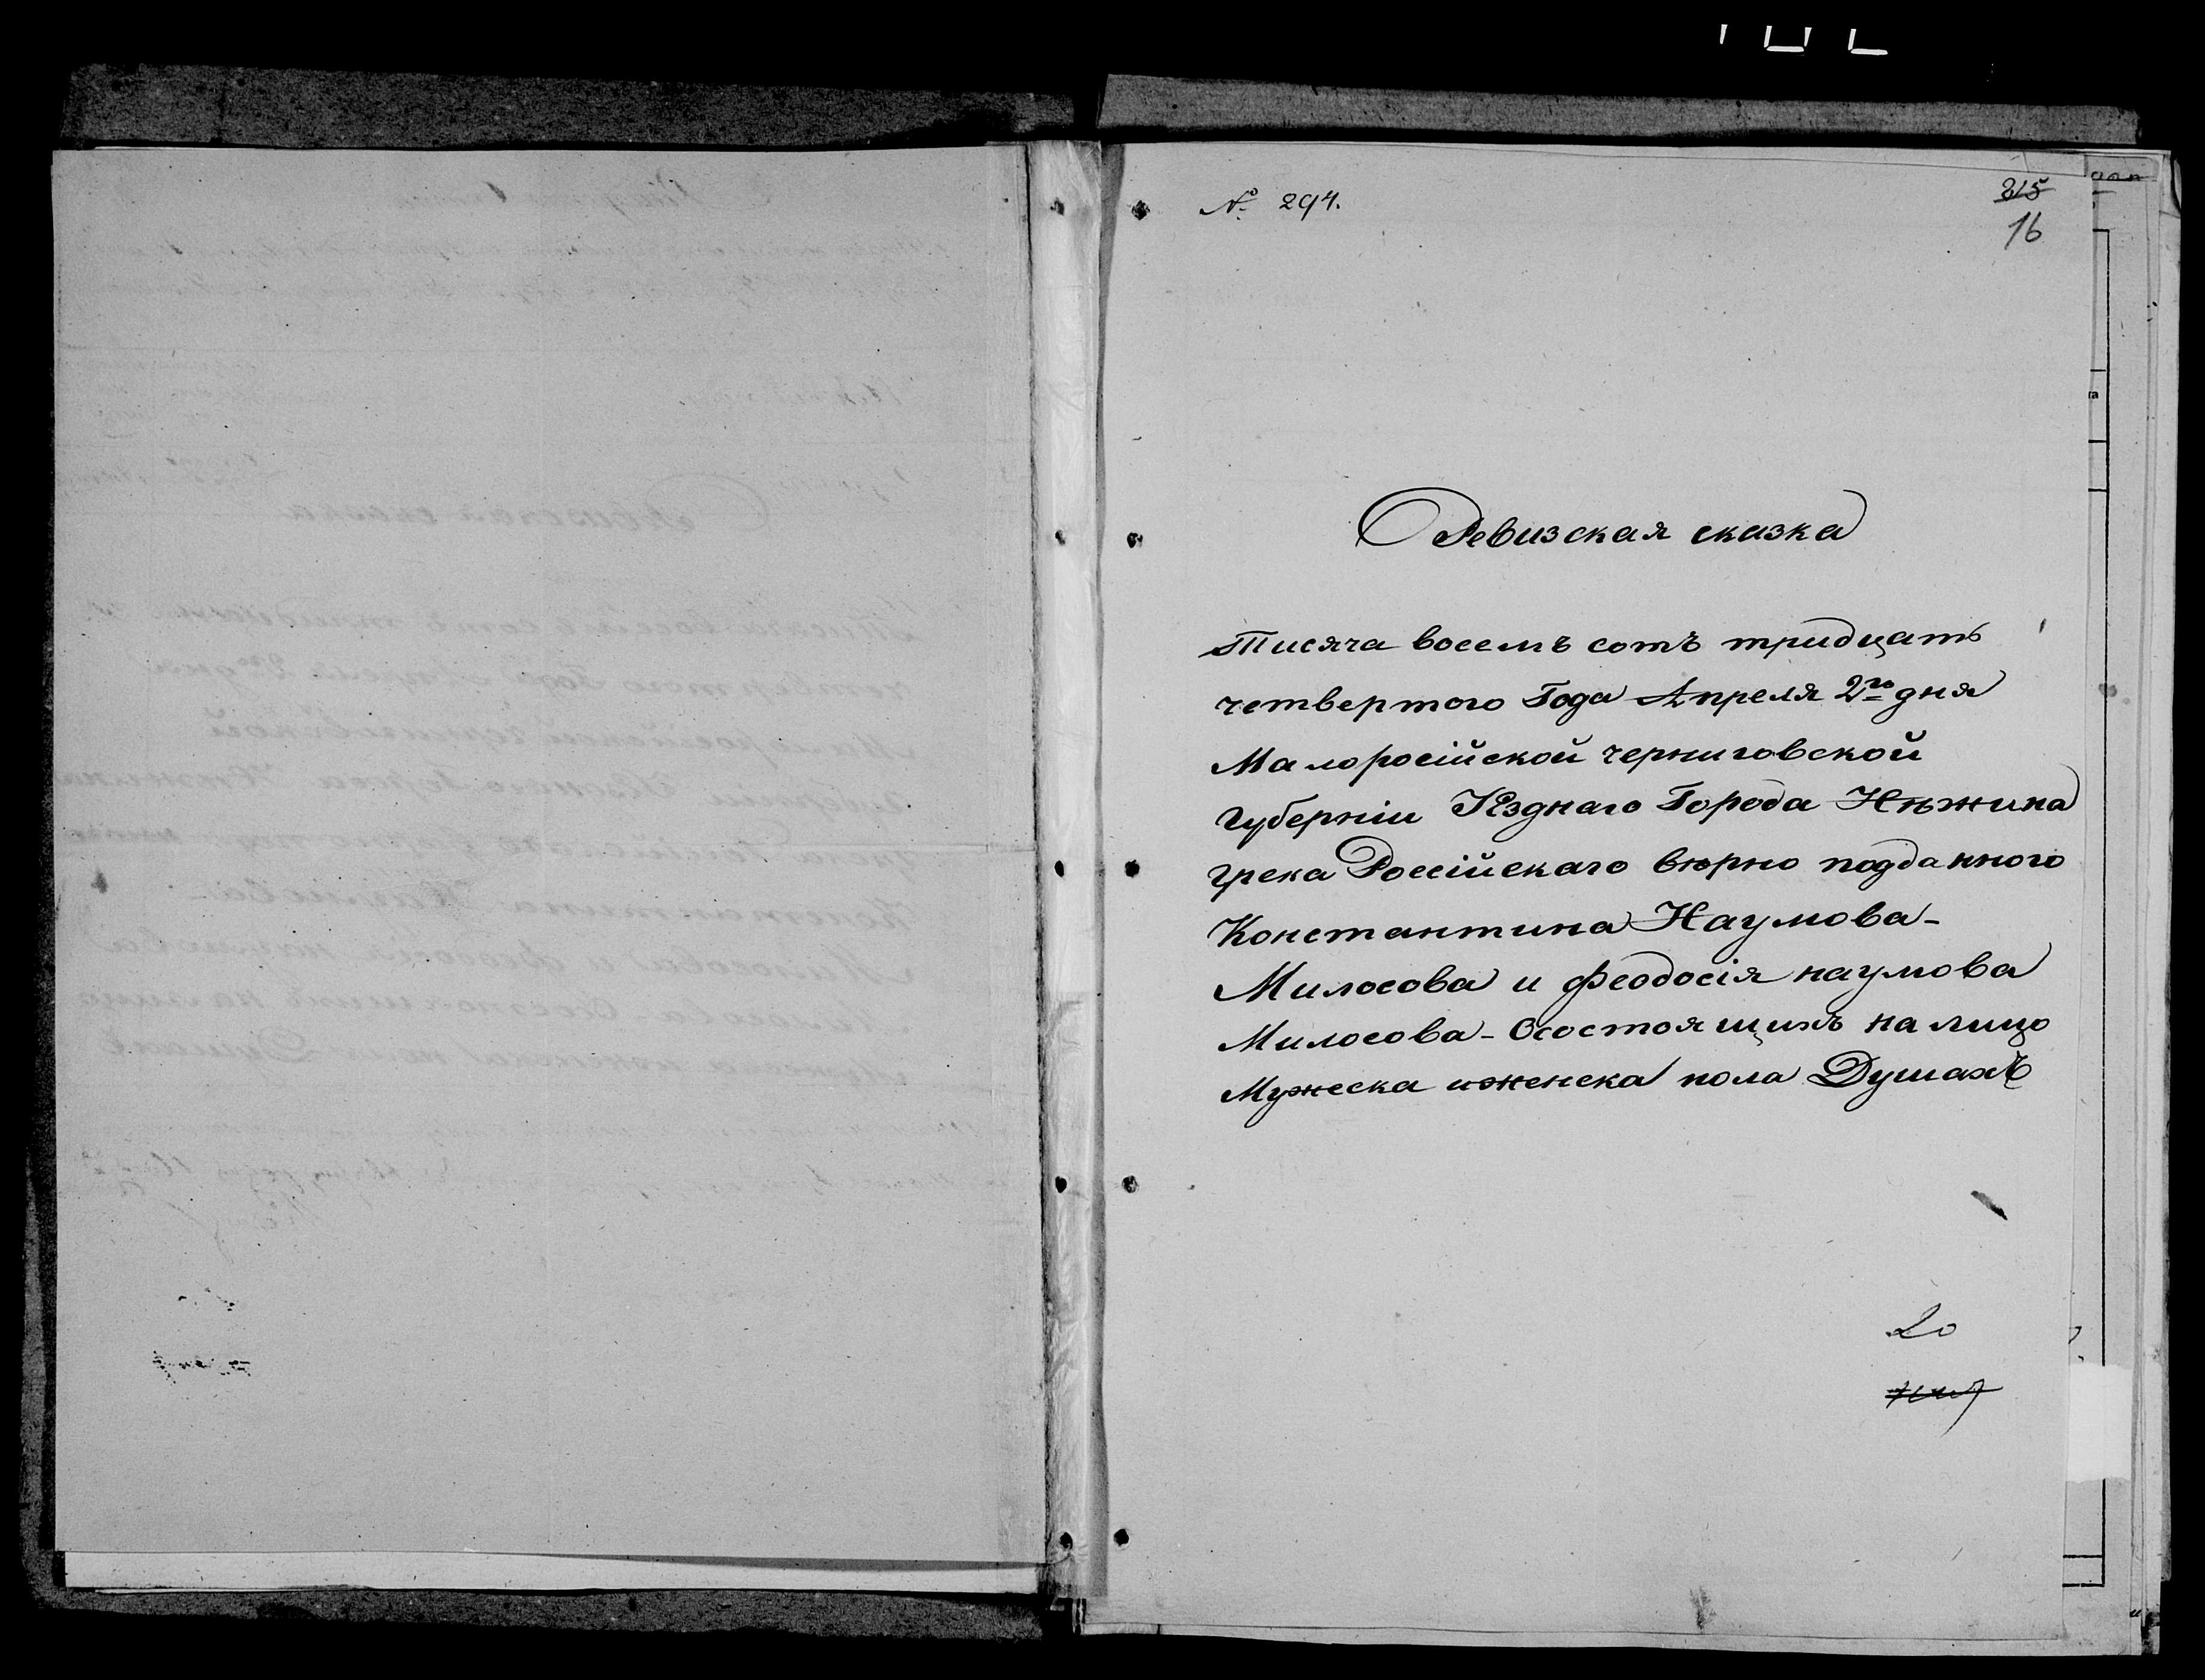 № 294.
215
16
Ревизская сказка
Тисяча восемъ сотъ тридцать
четвертого Года Апреля 2го дня
Малоросійской черниговской
Губерніи Уезднаго Города Нѣжина
грека Россійскаго вѣрно подданного
Константина Наумова-
Милосова и феодосія наумова
Милосова - Осостоящихъ на лицо
Мужеска иженска пола Душахъ
20